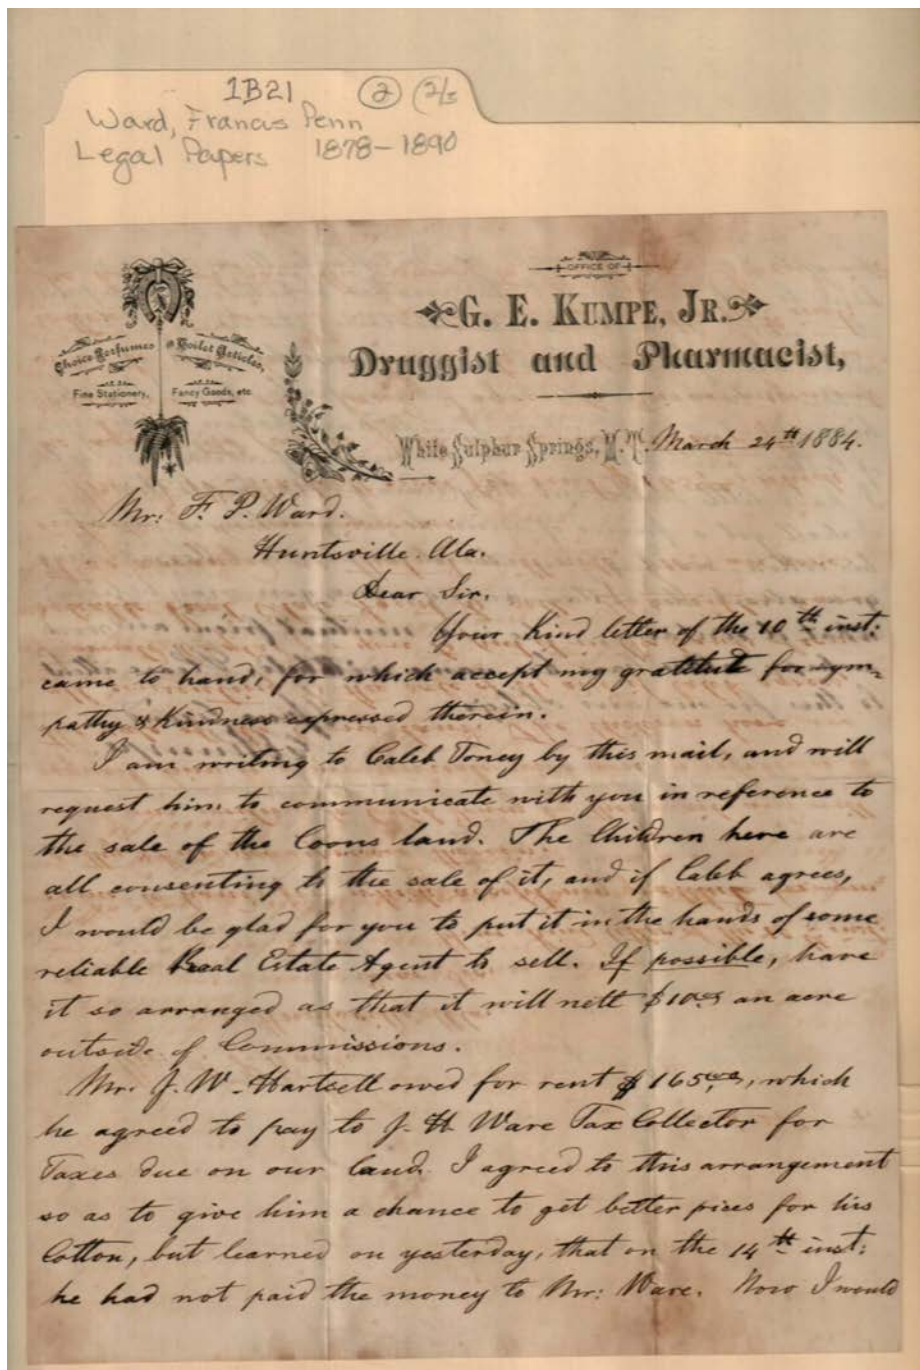 1B21 2 (2/5
Ward, Francis Penn
Legal Papers 1878-1890
OFFICE OF
G. E. KUMPE, JR.
Druggist and Pharmacist,
Choice Perfumes & Toilet Articles,
Fine Stationery, Fancy Goods, etc
White Sulphur Springs, M. T. March 24th 1884.
Mr: F. P. Ward.
Huntsville Ala.
Dear Sir.
Your Kind letter of the 10th inst:
came to hand, for which accept my gratitude for sym-
pathy & Kindness expressed therein.
I am writing to Caleb Toney by this mail, and will
request him to communicate with you in reference to
the sale of the Coons land. The Children here are
all consenting to the sale of it, and if Caleb agrees,
I would be glad for you to put it in the hands of some
reliable Real Estate Agent to sell. If possible, have
it so arranged as that it will nett $10.00 an acre
outside of Commissions.
Mr. J. W. Hartsell owed for rent $165.00, which
he agreed to pay to J. H. Ware Tax Collector for
Taxes due on our land. I agreed to this arrangement
so as to give him a chance to get better prices for his
Cotton, but learned on yesterday, that on the 14th inst:
he had not paid the money to Mr: Ware. Now I would